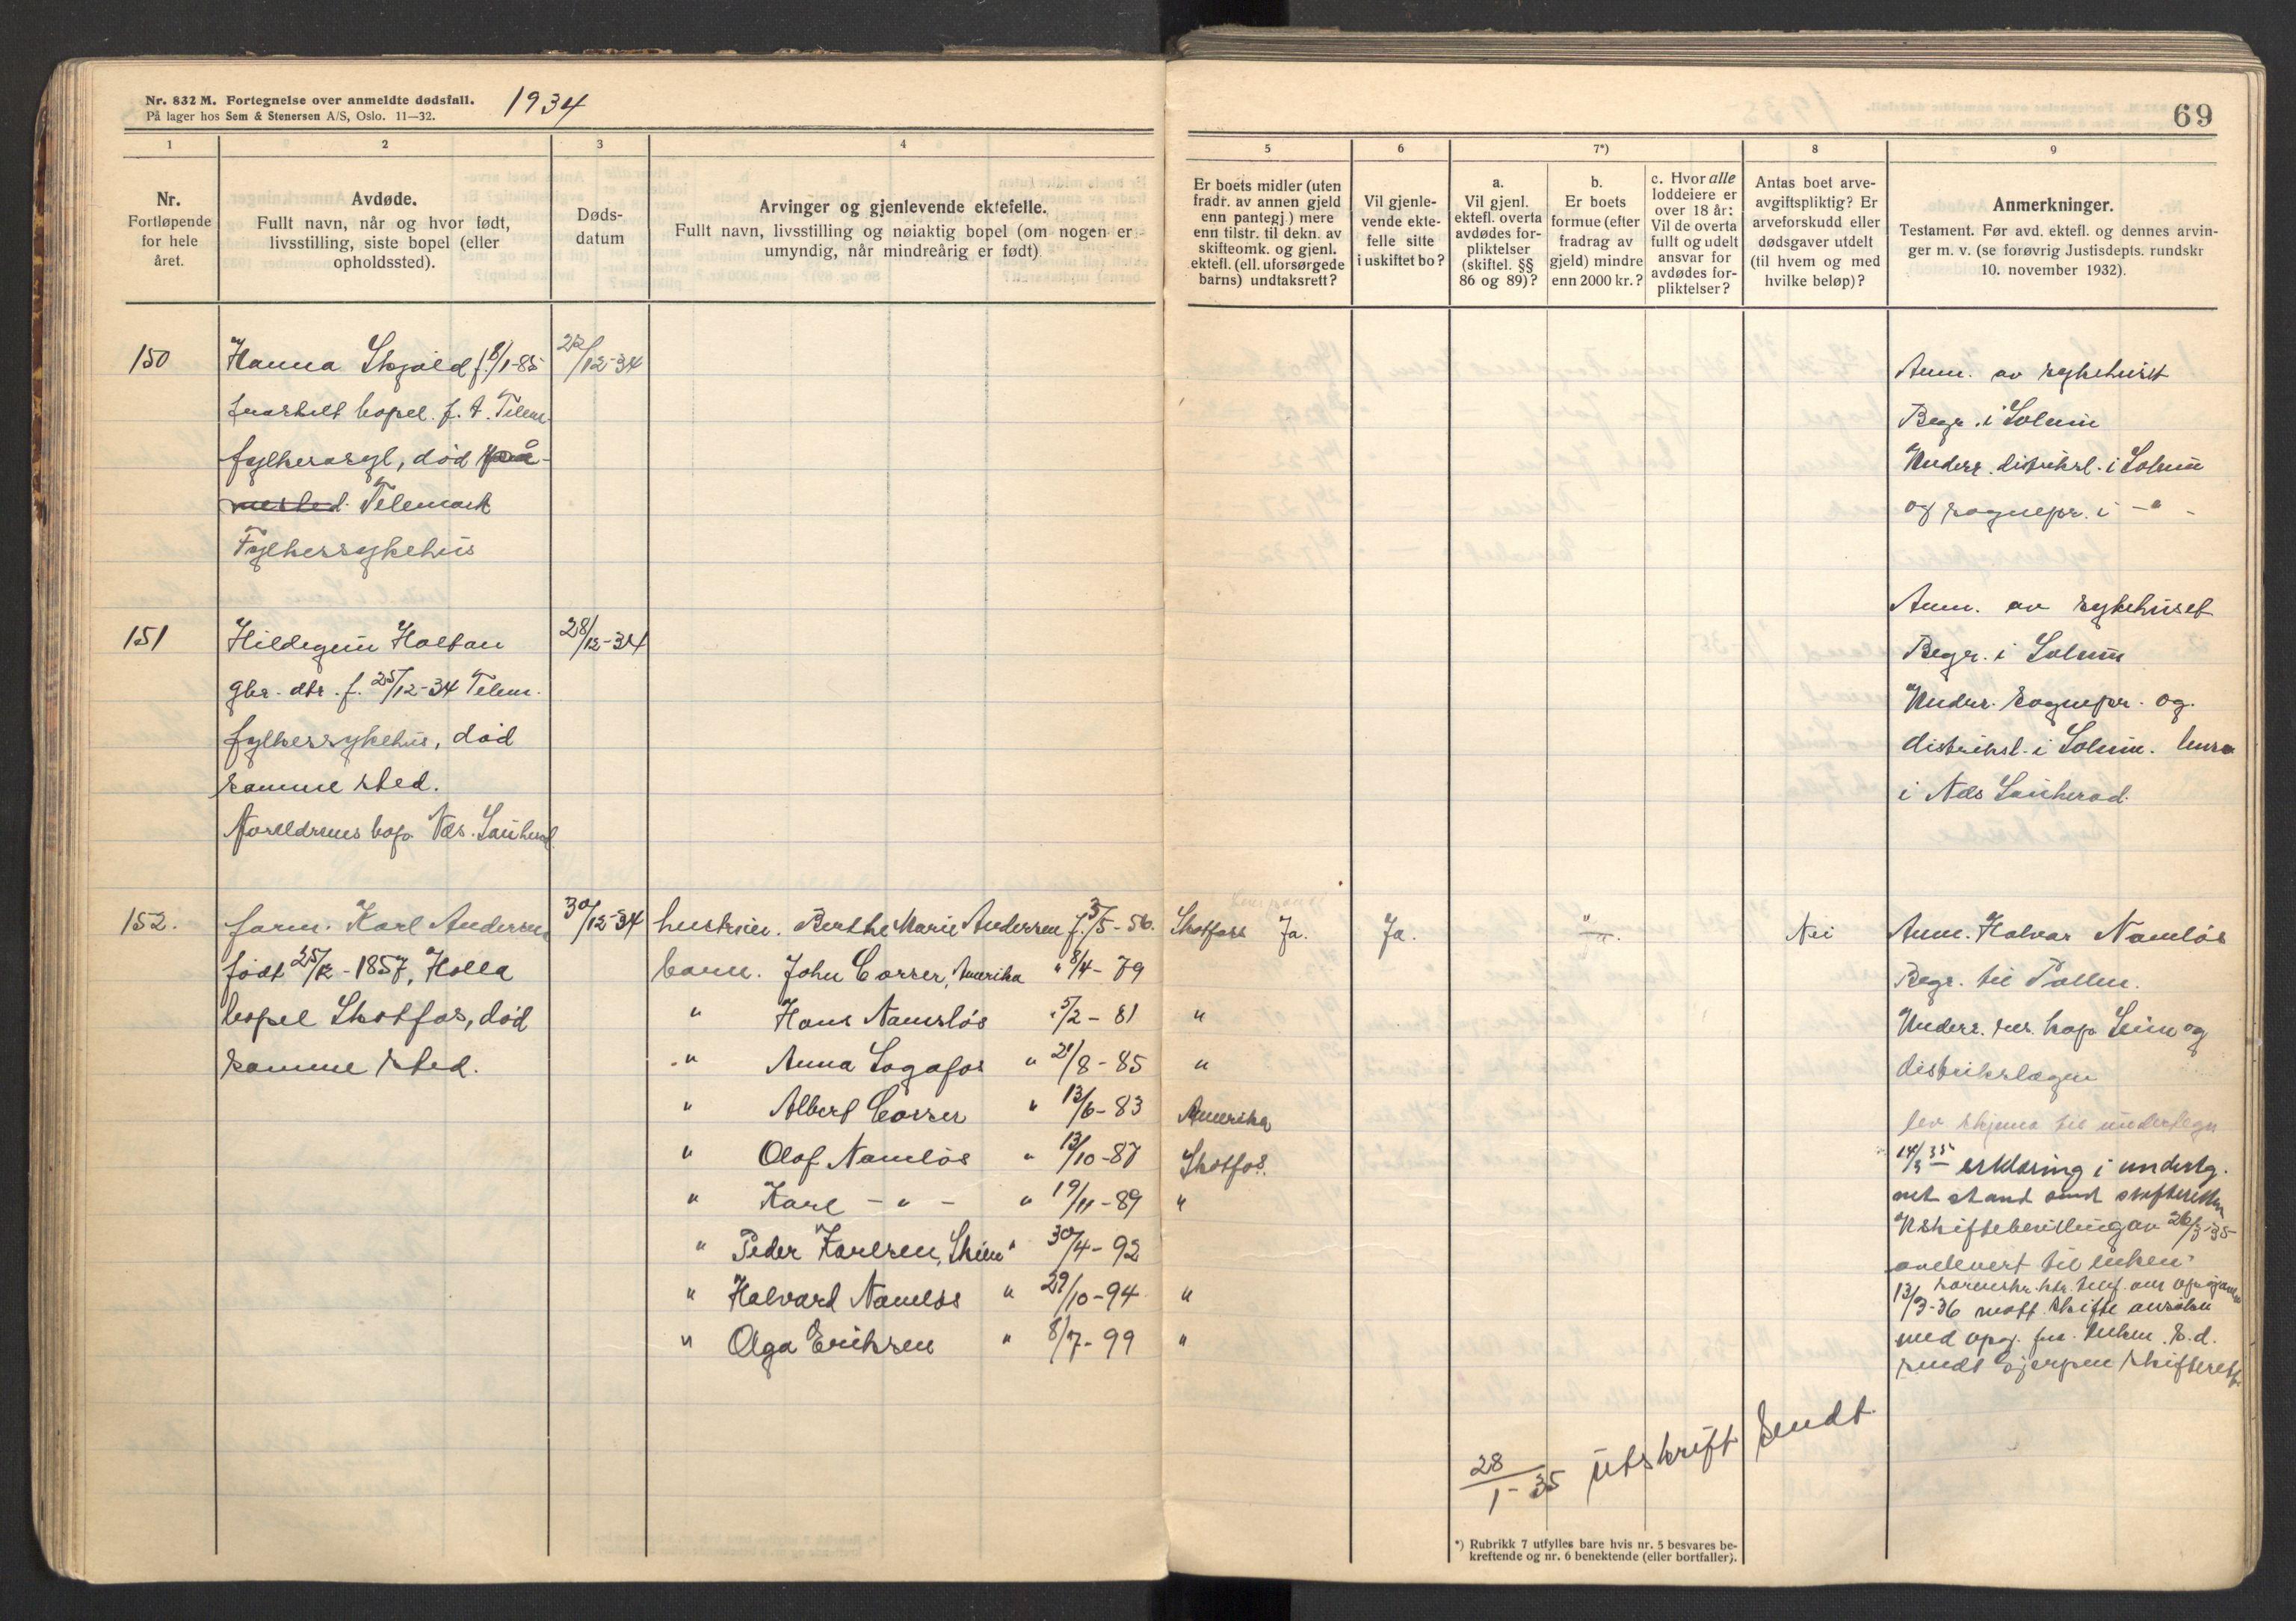 Nr. 832 M. Fortegnelse over anmeldte dødsfall.
På lager hos Sem & Stenersen A/S, Oslo. 11—32.
1934
69
1 2 3 4 5 6 7*) 8 9
Nr.
Fortløpende
for hele
året.
Avdøde.
Fullt navn, når og hvor født,
livsstilling, siste bopel (eller
opholdssted).
Døds-
datum
Arvinger og gjenlevende ektefelle.
Fullt navn, livsstilling og nøiaktig bopel (om nogen er
umyndig, når mindreårig er født)
Er boets midler (uten
fradr. av annen gjeld
enn pantegj.) mere
enn tilstr. til dekn. av
skifteomk. og gjenl.
ektef. (ell. uforsørgede
barns) undtaksrett?
Vil gjenle-
vende ekte-
felle sitte
i uskiftet bo?
a.
Vil gjenl.
ektefl. overta
avdødes for-
pliktelser
(skiftel. §§
86 og 89)?
b.
Er boets
formue (efter
fradrag av
gjeld) mindre
enn 2000 kr.?
c. Hvor alle
loddeiere er
over 18 år:
Vil de overta
fullt og udelt
ansvar for
avdødes for-
pliktelser?
Antas boet arve-
avgiftspliktig? Er
arveforskudd eller
dødsgaver utdelt
(til hvem og med
hvilke beløp)?
Anmerkninger.
Testament. Før avd. ektefl. og dennes arvin-
ger m. v. (se forøvrig Justisdepts. rundskr
10. november 1932).
150
Hanna Skjold f. 8/1-85
fraskilt bopel. f. t. Telem.
fylkesasyl, død på
Telemark
Fylkessykehus
22/12-34
Anm. av sykehuset
Begr. i Solum
Underr. distriksl. i Solum
og sognepr. i - " -
151
Hildegun Holtan
gbr. dtr. f. 25/12-34 Telem.
fylkessykehus, død
samme sted.
Foreldrenes bop. Nes. Sauherad
28/12-34
Anm. av sykehuset
Begr. i Solum
Underr. sognepr. og
distriksl. i Solum.
i Nes Sauherad.
152.
form. Karl Andersen
født 25/12 - 1857, Holla
bopel Skotfos, død
samme sted.
30/12-34
hustru. Berthe Marie Andersen f. 3/5-56. Skotfoss Ja. Ja. " Nei
barn. John Corser, Amerika " 8/4 - 79
" Hans Namløs " 5/2 - 81 "
" Anna Sagafos " 21/8 - 85 "
" Albert Corser " 13/6 - 83 Amerika
" Olaf Namløs " 13/10 - 87 Skotfos.
" Karl - " - " 19/11 - 89 "
" Peder Karlsen, Skien " 30/4 - 92
" Halvard Namløs " 29/10 - 94 "
" Olga Eriksen " 8/7 - 99 "
Anm. Halvar Namløs
Begr. til Pollen.
Underr. res. kap. Lein og
distrikslægen
lev skjema til undertegn
14/3 35 erklæring i undertg.
net stand sendt skifteretten
Uskiftebevilling av 26/3-35
avlevert til enken.
13/3-36 mott. skifte
med opg. fra enken. S. d.
sendt Gjerpen skifterett.
28/1-35 utskrift sendt.
*) Rubrikk 7 utfylles bare hvis nr. 5 besvares be-
kreftende og nr. 6 benektende (eller bortfaller).